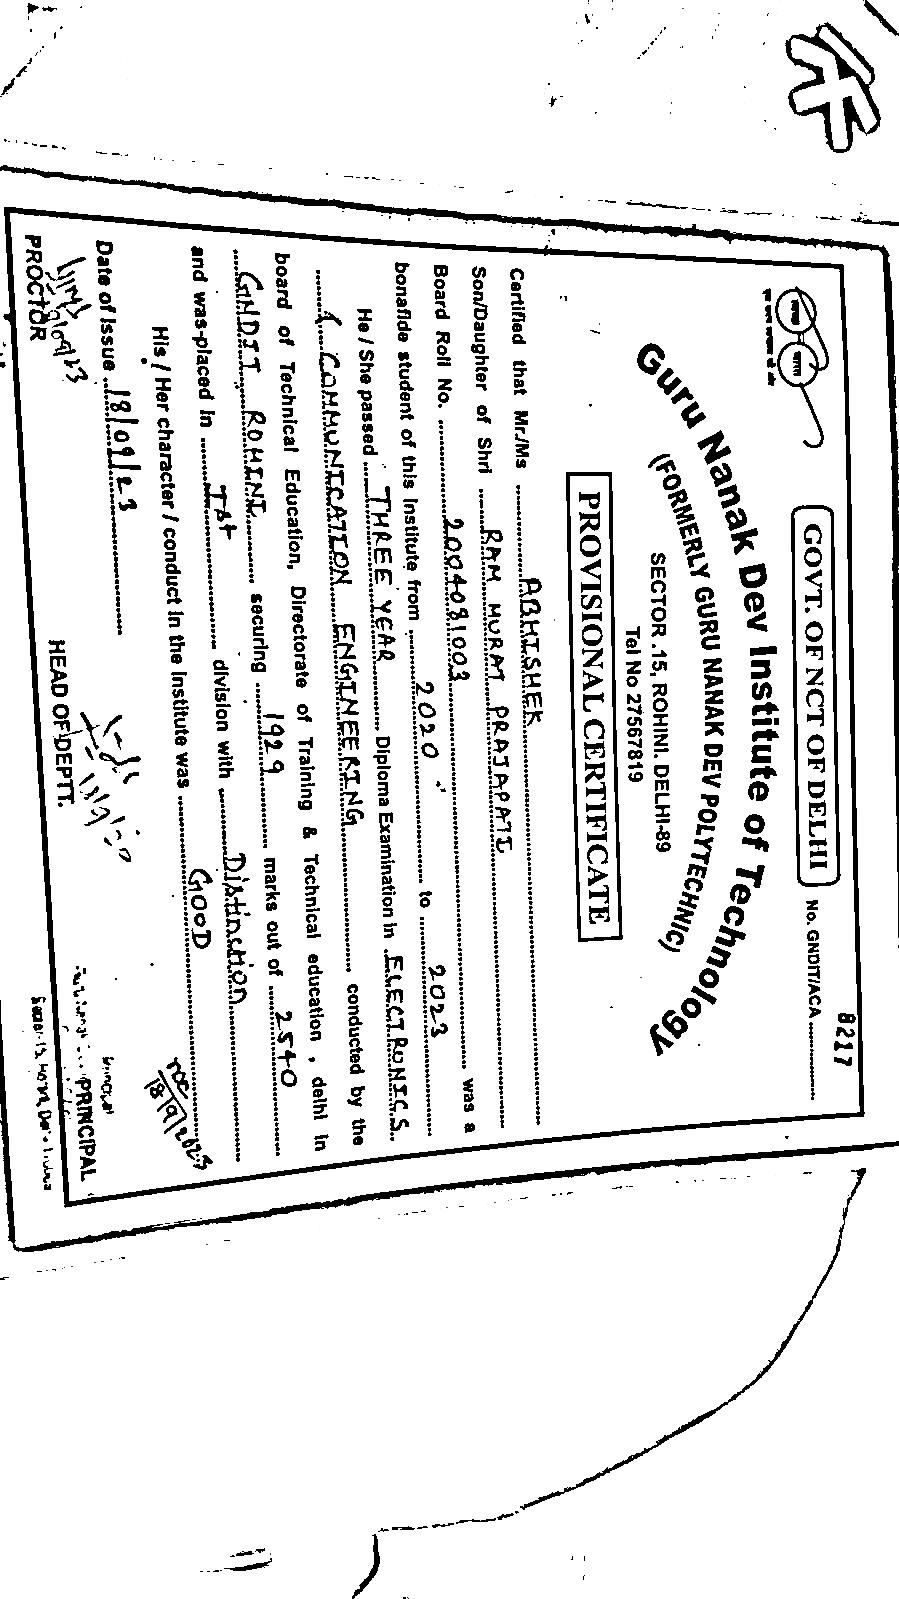 GOVT. OF NCT OF DELHI
No. GNDIT/ACA 8217
Guru Nanak Dev Institute of Technology
(FORMERLY GURU NANAK DEV POLYTECHNIC)
SECTOR .15, ROHINI. DELHI-89
Tel No 27567819
PROVISIONAL CERTIFICATE
Certified that Mr./Ms ABHISHEK
Son/Daughter of Shri RAM MURAT PRAJAPATI
Board Roll No. 2004081003 was a
bonafide student of this Institute from 2020 to 2023
He / She passed THREE YEAR Diploma Examination in ELECTRONICS
& COMMUNICATION ENGINEERING conducted by the
board of Technical Education, Directorate of Training & Technical education , delhi in
GNDIT ROHINI securing 1929 marks out of 2540
and was-placed in Ist division with Distinction
His / Her character / conduct in the Institute was GOOD
Date of Issue 18/09/23
18/9/2023
PROCTOR
HEAD OF DEPTT.
PRINCIPAL